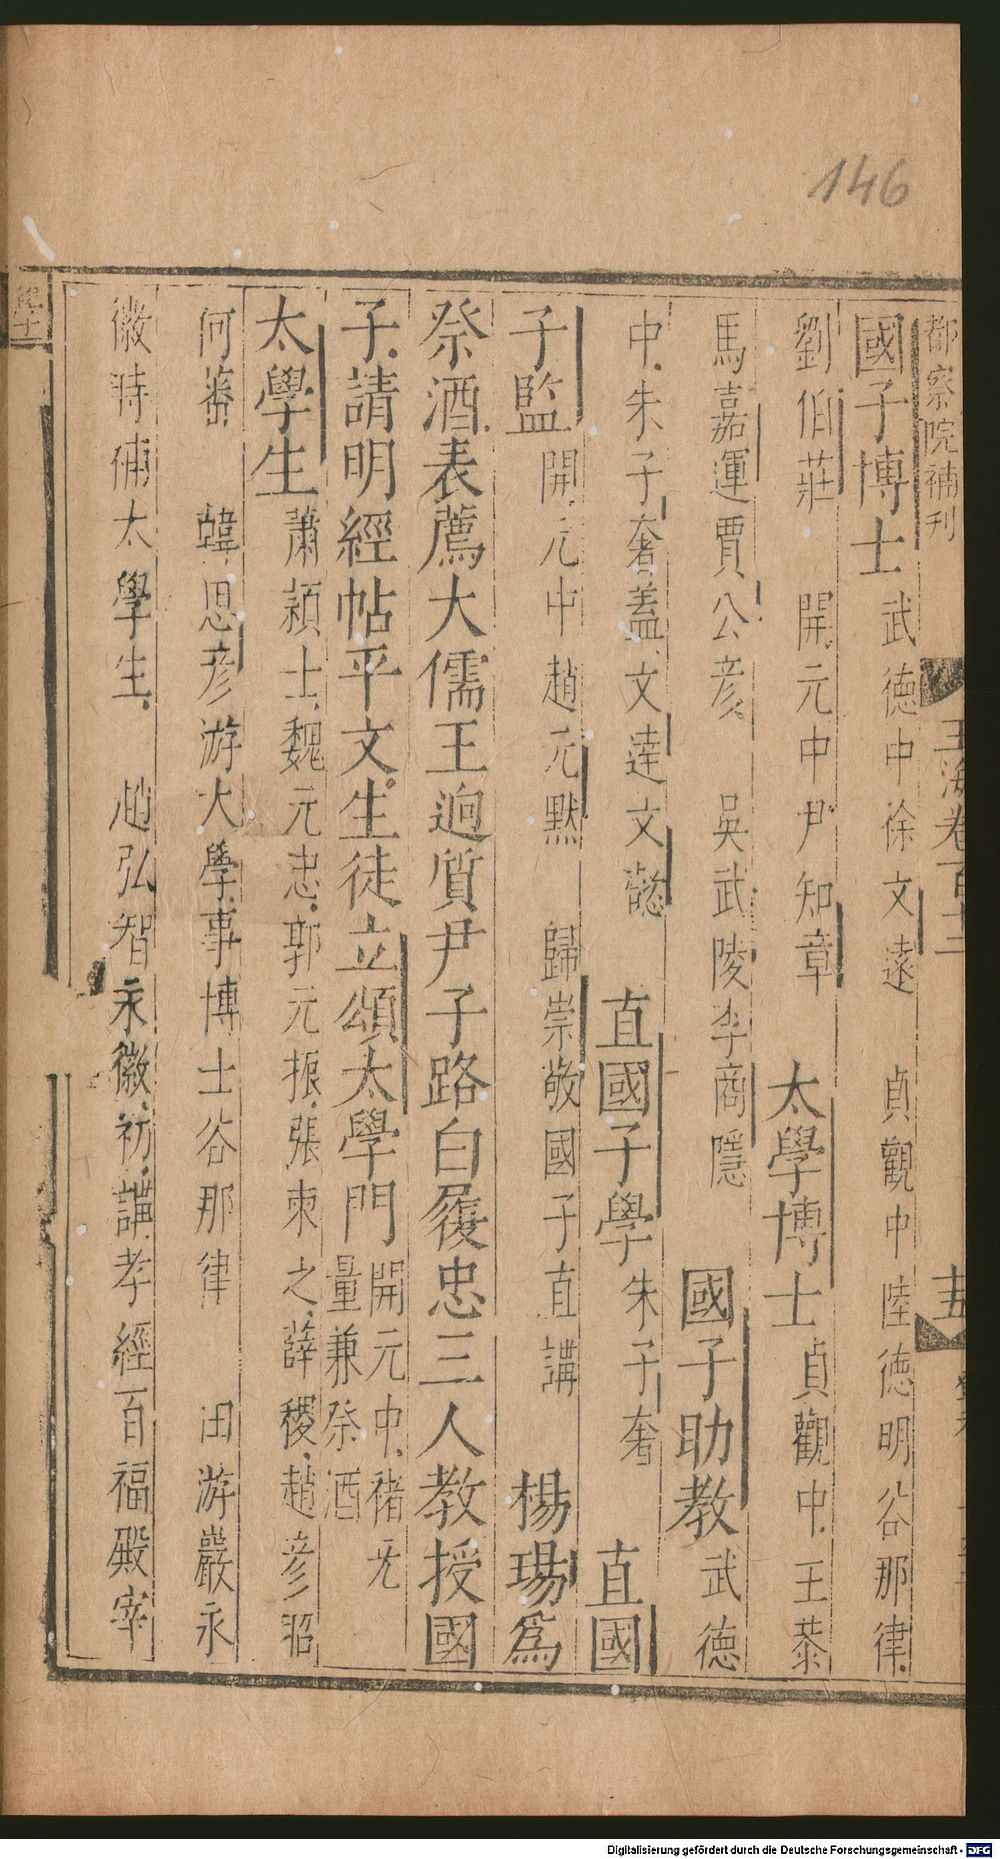 146
都察院補刊
玉海卷百十
國子博士 武德中徐文遠 貞觀中 陸德明谷那律
劉伯莊 開元中尹知章 太學博士 貞觀中王恭
馬嘉運賈公彦 吳武陵李商隱 國子助教 武德
中朱子奢蓋文達文懿 直國子學 朱子奢 直國
子監 開元中趙元默 歸崇敬國子直講 楊瑒爲
祭酒表薦大儒王迥質尹子路白履忠三人教授國
子請明經帖平文生徒立頌太學門 開元中褚无量兼祭酒
太學生 蕭穎士魏元忠郭元振張柬之薛稷趙彦昭
何蕃 韓思彦游大學事博士谷那律 田游巖永
徽時補太學生 趙弘智永徽初講孝經百福殿宰
Digitalisierung gefördert durch die Deutsche Forschungsgemeinschaft - DFG